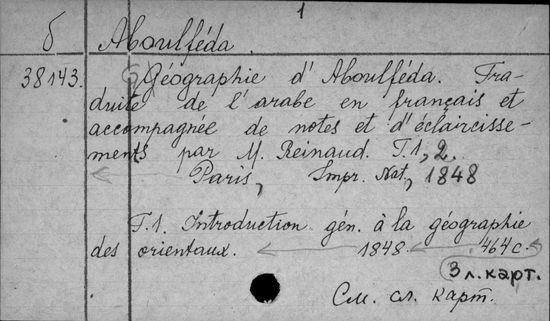 1
б Aboulféda.
38143. Géographie d'Aboulféda. Tra-
duite de l'arabe en français et
accompagnée de notes et d'éclaircisse-
ments par M. Reinaud. T.1, 2.
Paris, Impr. Nat., 1848
T.1. Introduction gén. à la géographie
des orientaux. 1848. 464 c.
3 л. карт.
См. сл. карт.